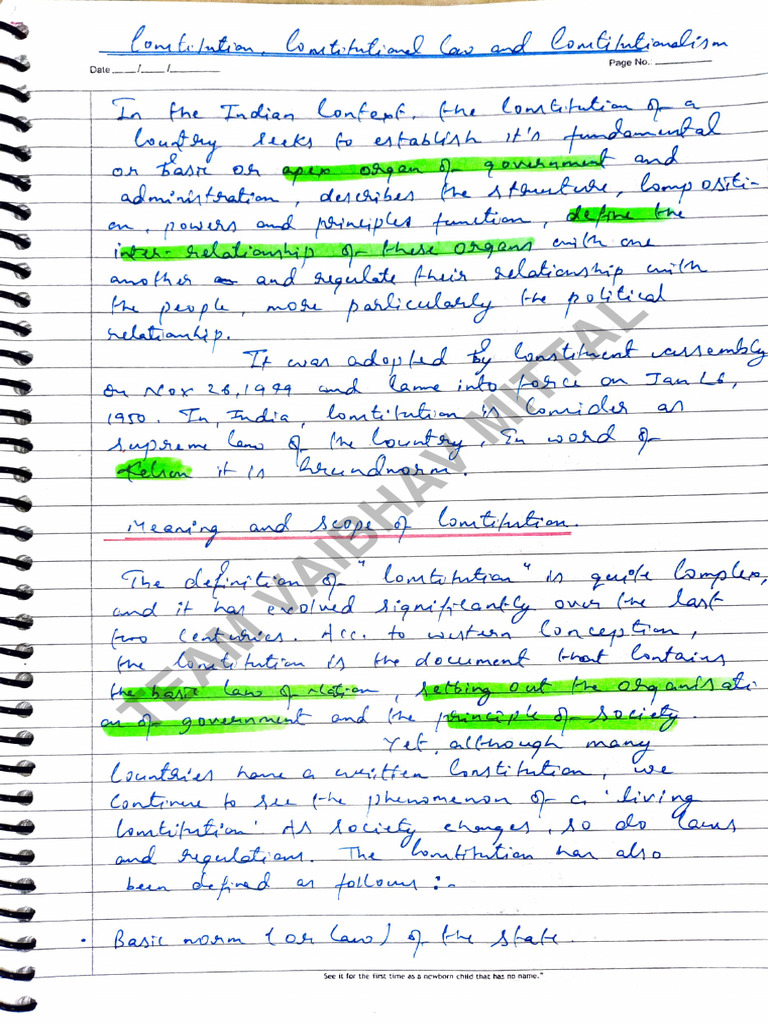 Constitution, Constitutional Law and Constitutionalism
Date ____/____/________ Page No.: __________
In the Indian Context, the Constitution of a
Country seeks to establish it's fundamental
or Basic or apex organ of government and
administration, describes the structure, Compositi-
on, powers and principles function, define the
inter-relationship of these organs with one
another and regulate their relationship with
the people, more particularly the political
relationship.
It was adopted By Constituent assembly
on Nov 26, 1949 and came into force on Jan 26,
1950. In, India, Constitution is Consider as
supreme law of the Country, In word of
Kelson it is Grundnorm.
Meaning and scope of Constitution.
The definition of "Constitution" is quite Complex,
and it has evolved significantly over the last
two Centuries. Acc. to western Conception,
the Constitution is the document that contains
the basic law of nation, setting out the organisati-
on of government and the principle of society.
Yet, although many
Countries have a written Constitution, we
continue to see the phenomenon of a 'living
Constitution' As society changes, so do laws
and regulations. The Constitution has also
been defined as follows :-
• Basic norm (or law) of the state.
See it for the first time as a newborn child that has no name."
TEAM VAIBHAV MITTAL